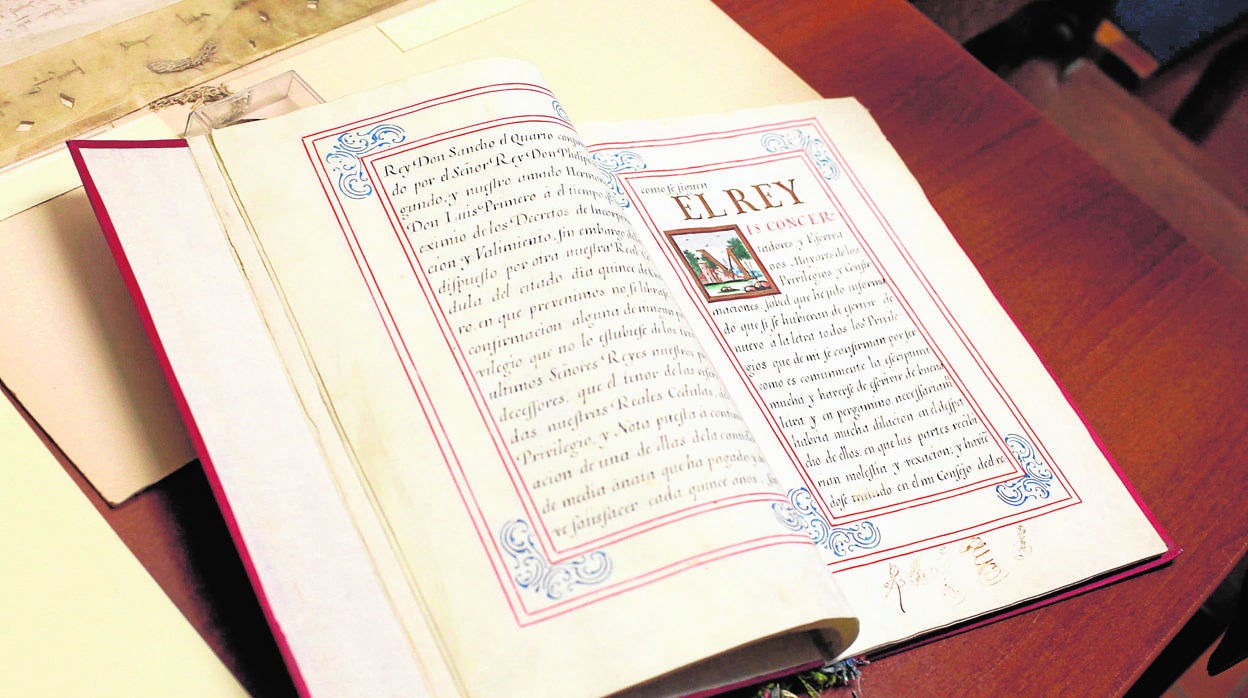 Rey Don Sancho el Quarto, con
do por el Señor Rey Don Phelip
gundo, y nuestro amado Herman
Don Luis Primero à el tiempo
eximio de los Decretos de Incorpo
cion y Valimiento, sin embargo de lo
dispuesto por otra nuestra Real Ce
dula del citado dia quince de
ro, en que prevenimos no se libras
confirmacion alguna de ningun
vilegio que no lo estubiese de los tres
ultimos Señores Reyes nuestros pre
decessores, que el tenor de las refer
das nuestras Reales Cedulas, de
Privilegio, y Nota puesta à continu
acion de una de ellas de la
de media ànata que ha pagado y
re satisfacer cada quince anos,
como se siguen
EL REY
MIS CONCER-
tadores y Escriva
nos Mayores de los
Privilegios y Confir
maciones, sabed que he sido informa
do que si se hubieran de escrivir de
nuevo a la letra todos los Privile-
gios que de mi se confirman por ser
como es comunmente la escriptura
mucha y haverse de escrivir de buena
letra y en pergamino, necessariam
habria mucha dilacion en el despa
cho de ellos, en que las partes recibi
rian molestia y vexacion; y havie
dose tratado en el mi Consejo de